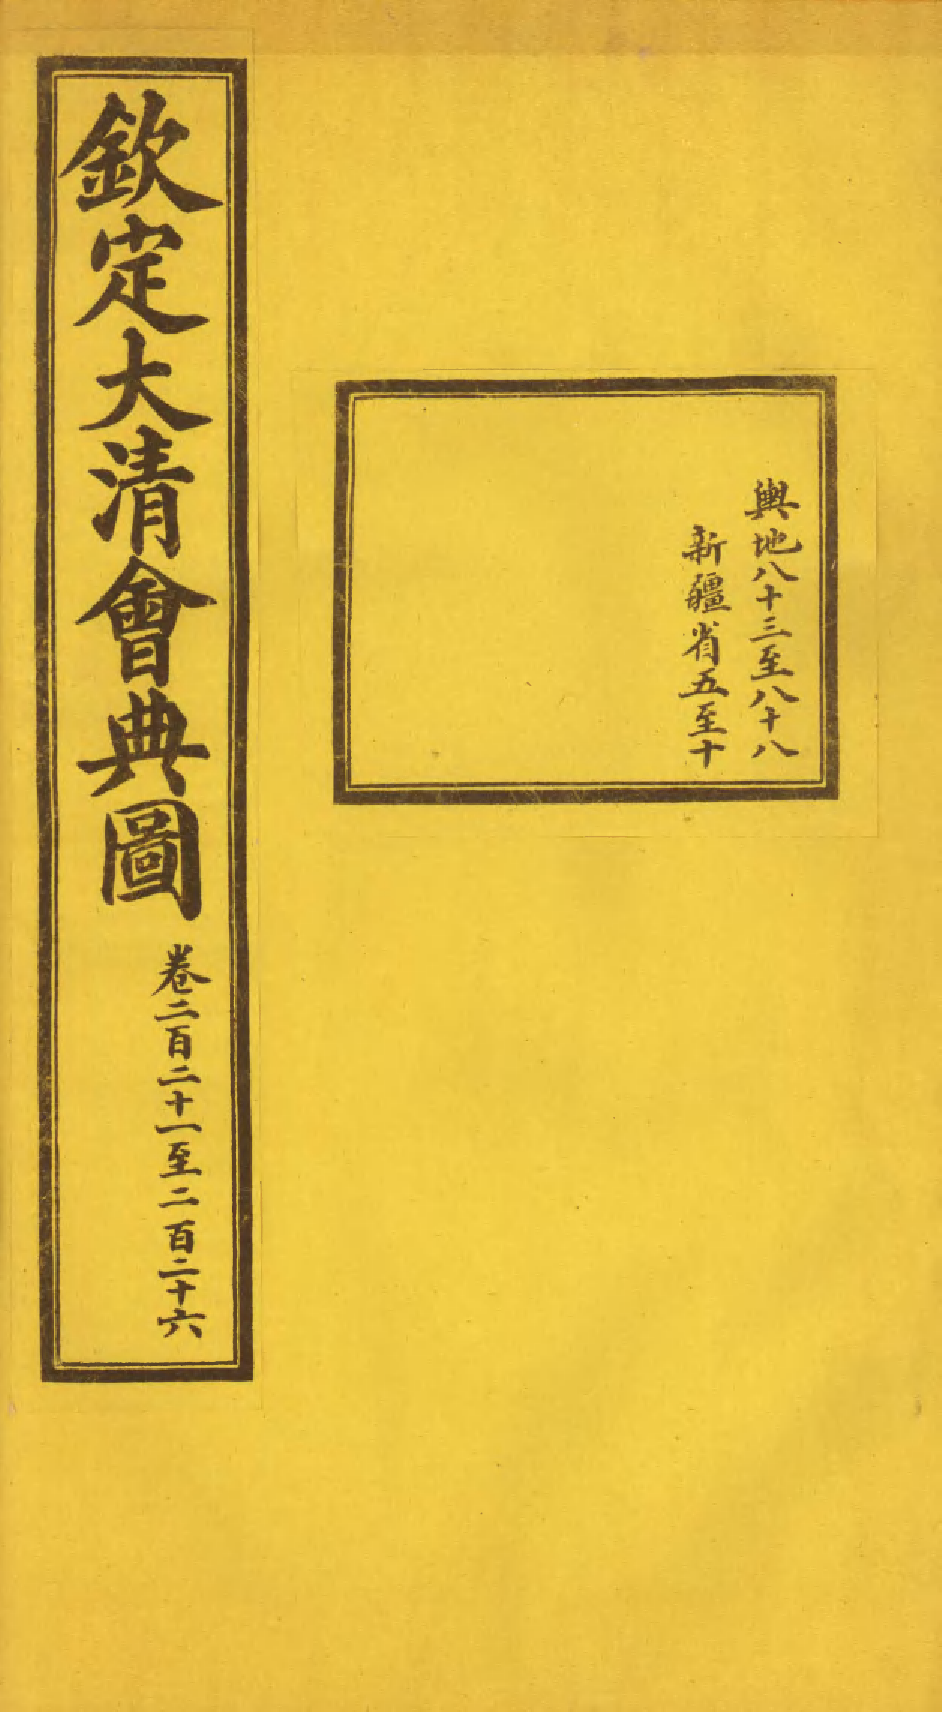 欽定大清會典圖
卷二百二十一至二百二十六
輿地八十三至八十八
新疆省五至十